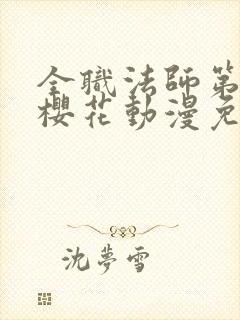 全職法師第
櫻花動漫免
沈夢雪